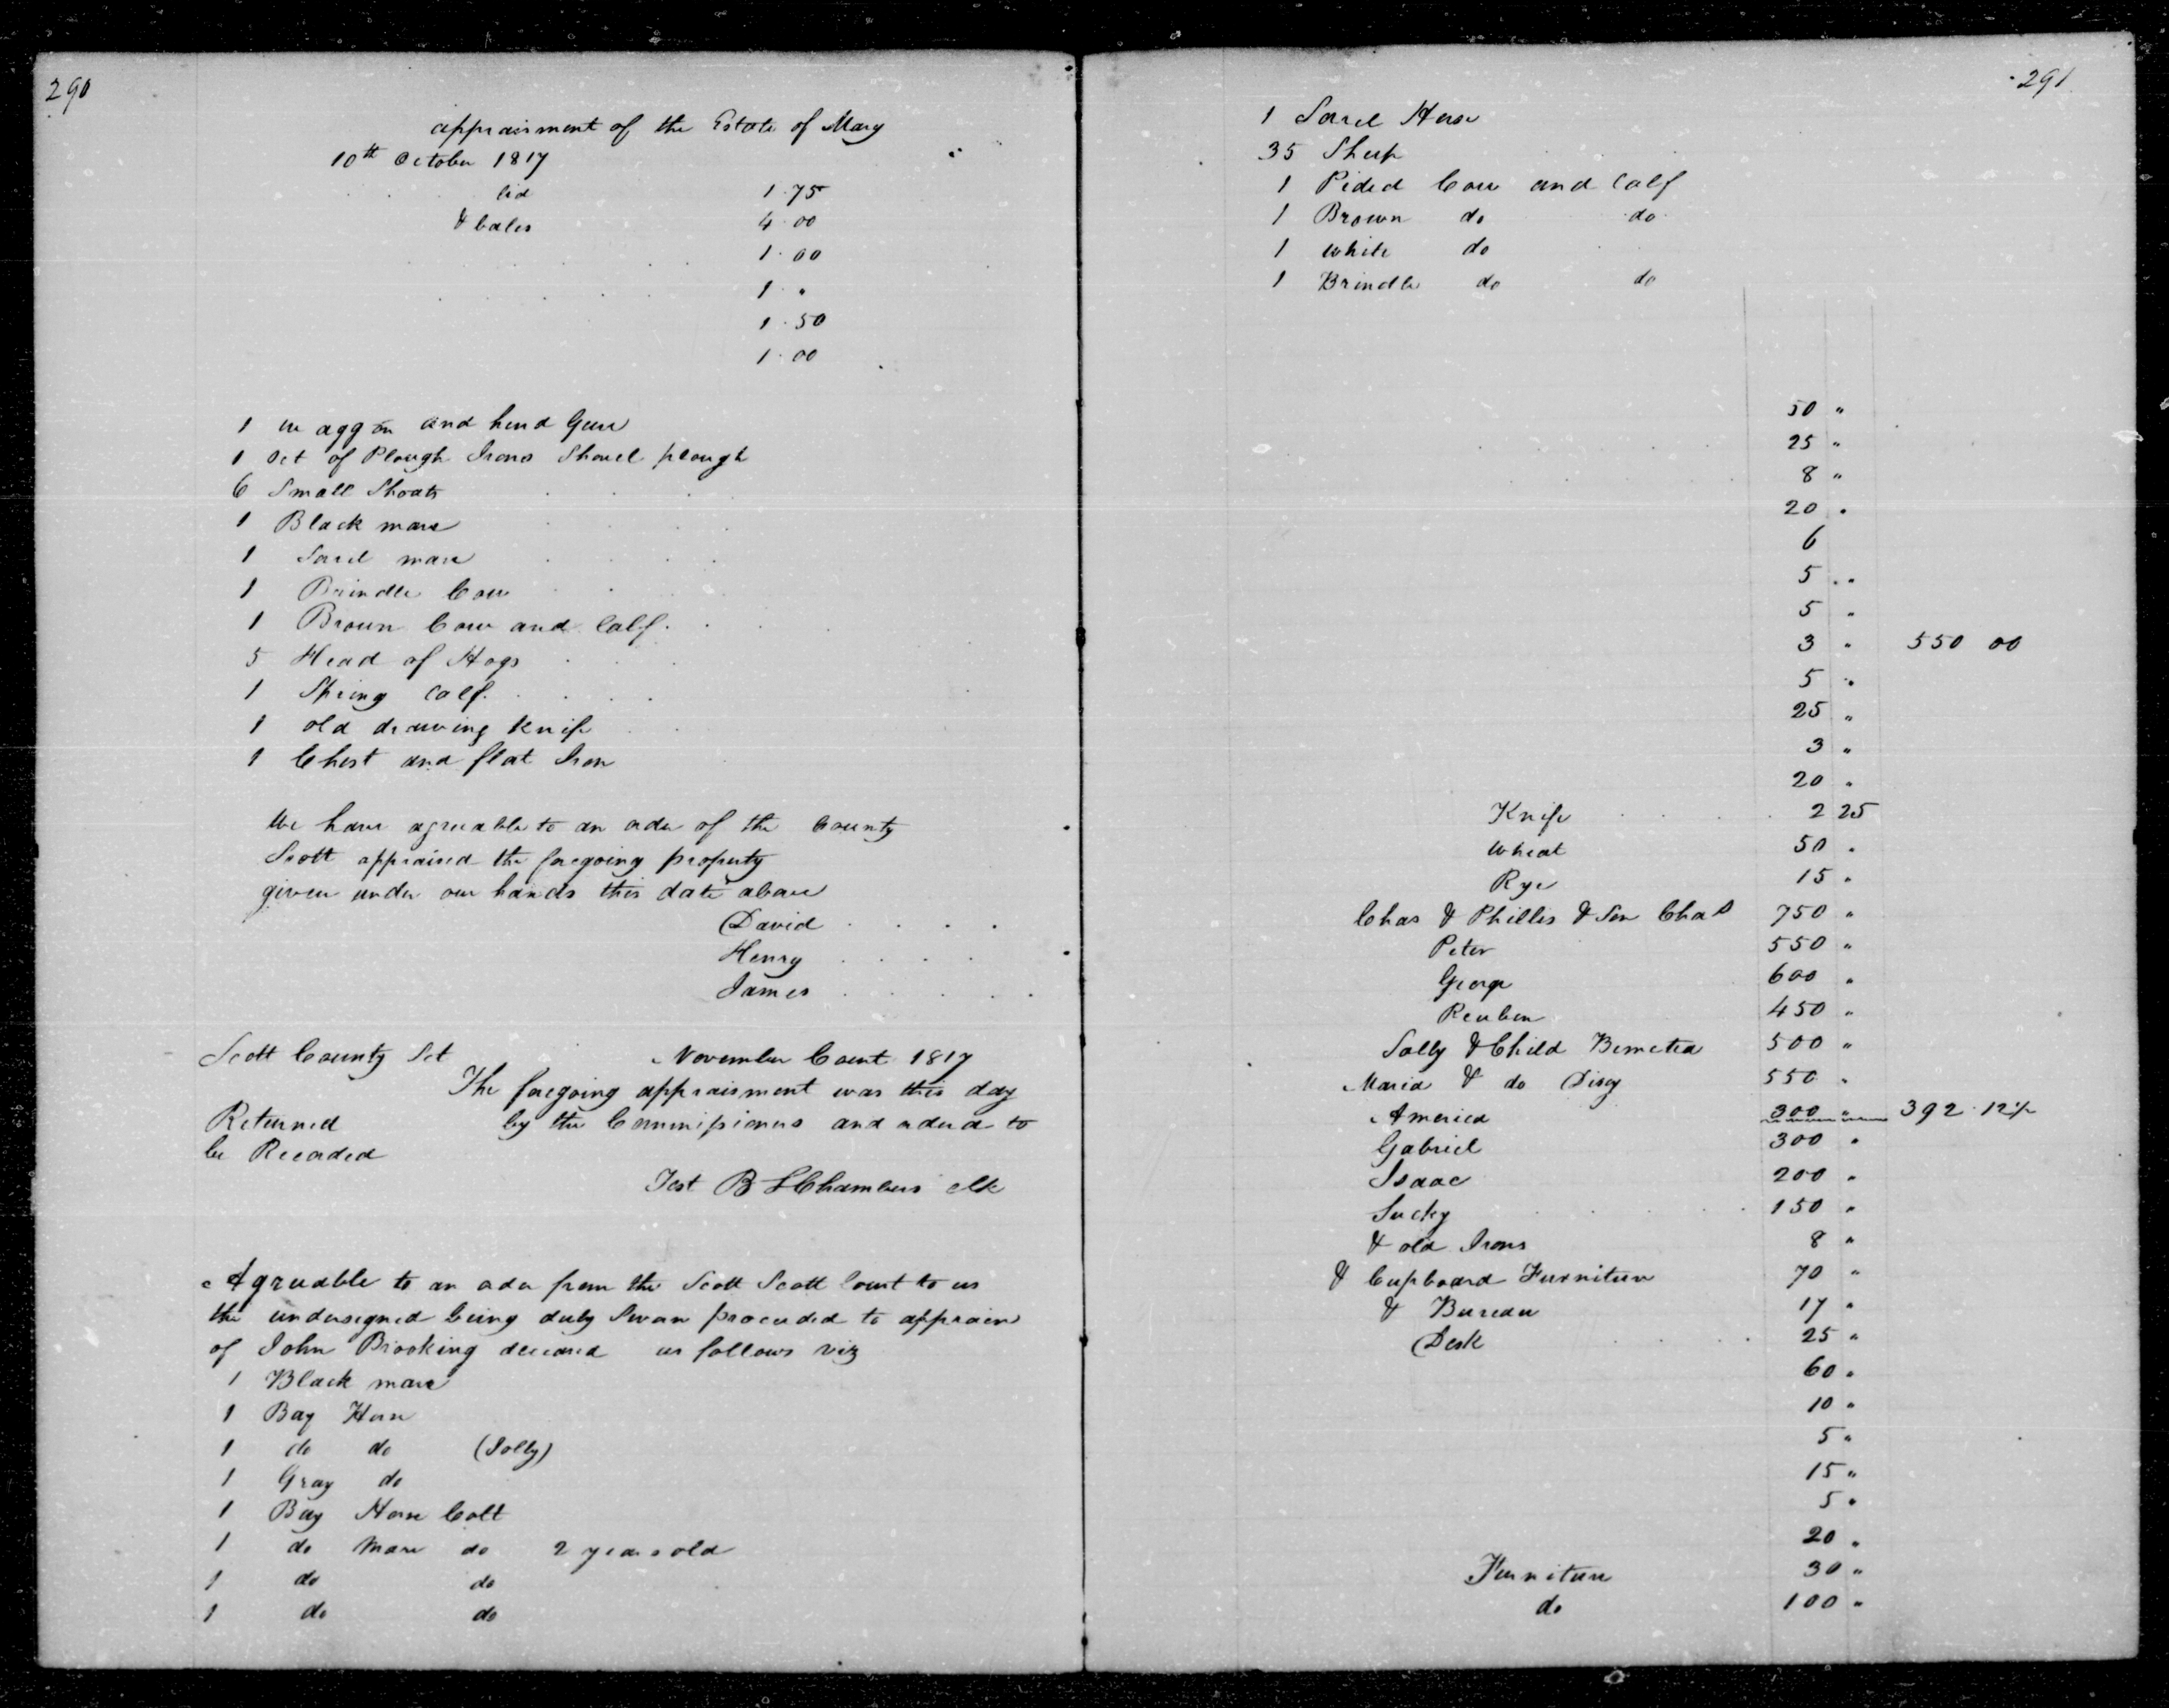 290
appraisment of the Estate of Mary
10th October 1817
lid 1.75
& bales 4.00
1.00
1 "
1.50
1.00
1 waggon and hind Gear
1 set of Plough Irons Shovel plough
6 Small Shoats
1 Black mare
1 Sorrel mare
1 Brindle Cow
1 Brown Cow and Calf
5 Head of Hogs
1 Spring Calf
1 old drawing Knife
1 Chest and flat Iron
We have agreeable to an order of the County
Scott appraised the foregoing property
given under our hands this date above
David
Henry
James
Scott County Sct November Court 1817
The foregoing appraisment was this day
Returned by the Commissioners and ordered to
be Recorded
Test B S Chambers clk
Agreeable to an order from the Scott Scott Court to us
the undersigned being duly Sworn proceeded to appraise
of John Brooking deceased as follows viz
1 Black mare
1 Bay Horse
1 do do (Jolly)
1 Gray do
1 Bay Horse Colt
1 do Mare do 2 years old
1 do do
1 do do
291
1 Sorel Horse
35 Sheep
1 Pided Cow and Calf
1 Brown do do
1 white do
1 Brindle do do
50 "
25 "
8 "
20 "
6
5 "
5 "
3 " 550 00
5 "
25 "
3 "
20 "
Knife 2 25
Wheat 50 "
Rye 15 "
Chas & Phillis & Son Chas 750 "
Peter 550 "
George 600 "
Reuben 450 "
Sally & Child 500 "
Maria & do Disey 550 "
America 300 " 392.12½
Gabriel 300 "
Isaac 200 "
Sucky 150 "
& old Irons 8 "
& Cupboard Furniture 70 "
& Bureau 17 "
Desk 25 "
60 "
10 "
5 "
15 "
5 "
20 "
Furniture 30 "
do 100 "